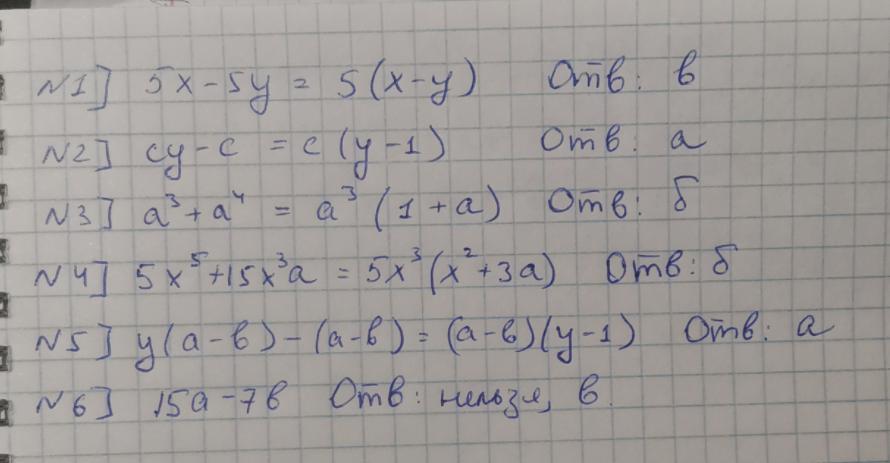 N1] 5x-5y = 5(x-y) Отв: в
N2] cy-c = c(y-1) Отв: а
N3] a³+a⁴ = a³(1+a) Отв: б
N4] 5x⁵+15x³a = 5x³(x²+3a) Отв: б
N5] y(a-в)-(a-в) = (a-в)(y-1) Отв: а
N6] 15a-7в Отв: нельзя, в.